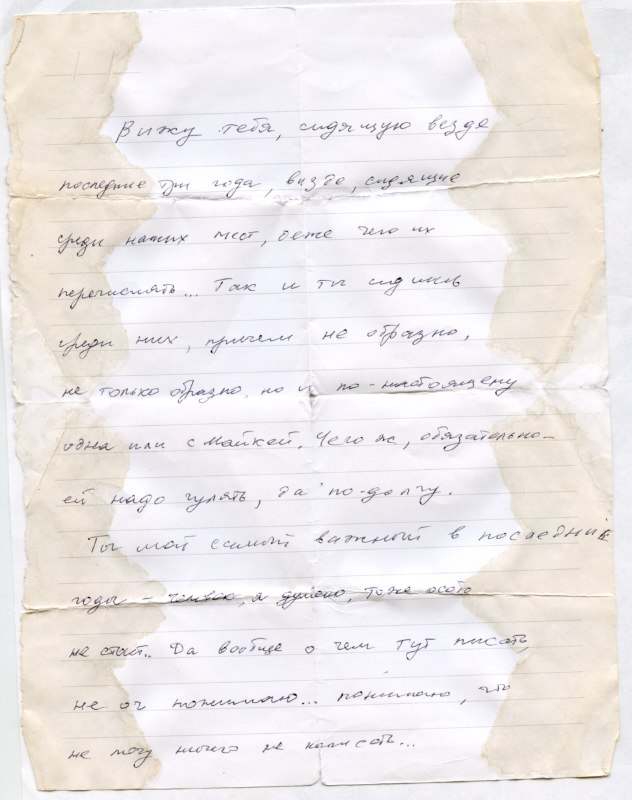 Вижу тебя, сидящую везде
последние три года, везде, сидящие
среди наших мест, чего их
перечислять... Так и ты сидишь
среди них, причем не образно,
не только образно, но и по-настоящему
одна или с Майкой. Чего ж, обязательно
ей надо гулять, да по-долгу.
Ты мой самый важный в последние
годы – человек, я думаю, тоже особо
не стоит.. Да вообще о чем тут писать
не оч понимаю... понимаю, что
не могу ничего не написать...